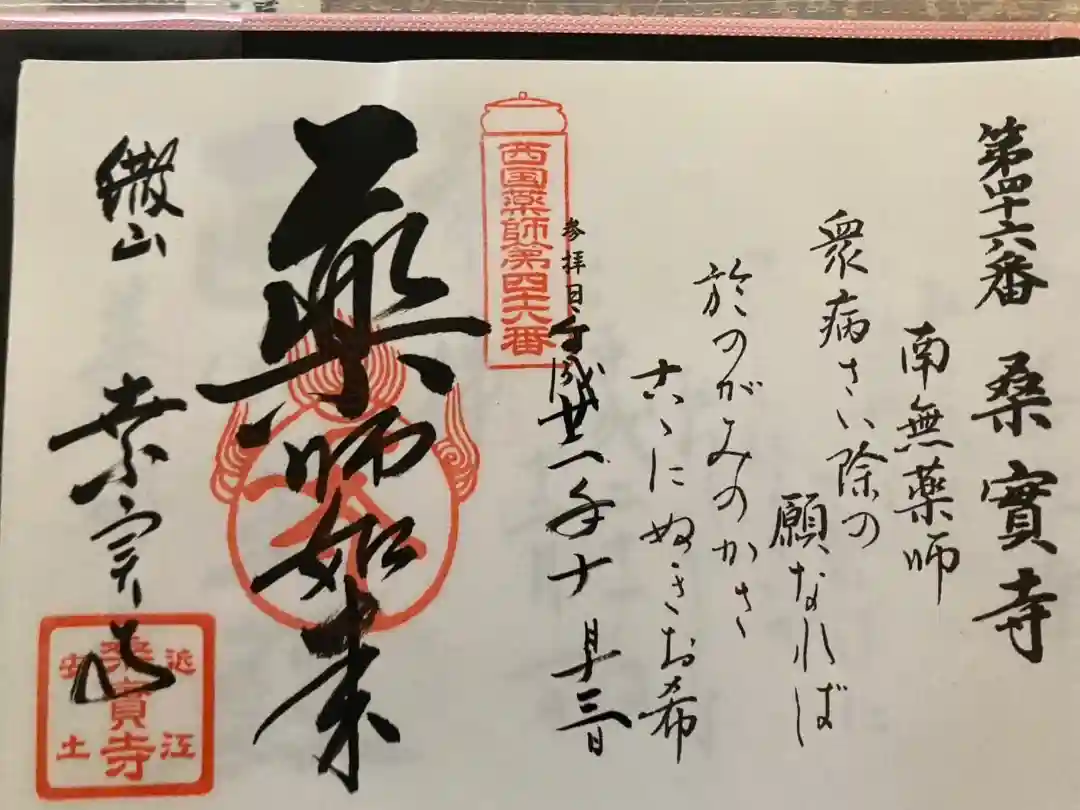 第四十六番 桑實寺
南無薬師
衆病さい除の
願なれば
於のがみのかさ
古ゝにぬきお希
参拝日 平成廿一年十月十三日
西国薬師第四十六番
薬師如来
繖山 桑實寺
近江
桑實寺
安土